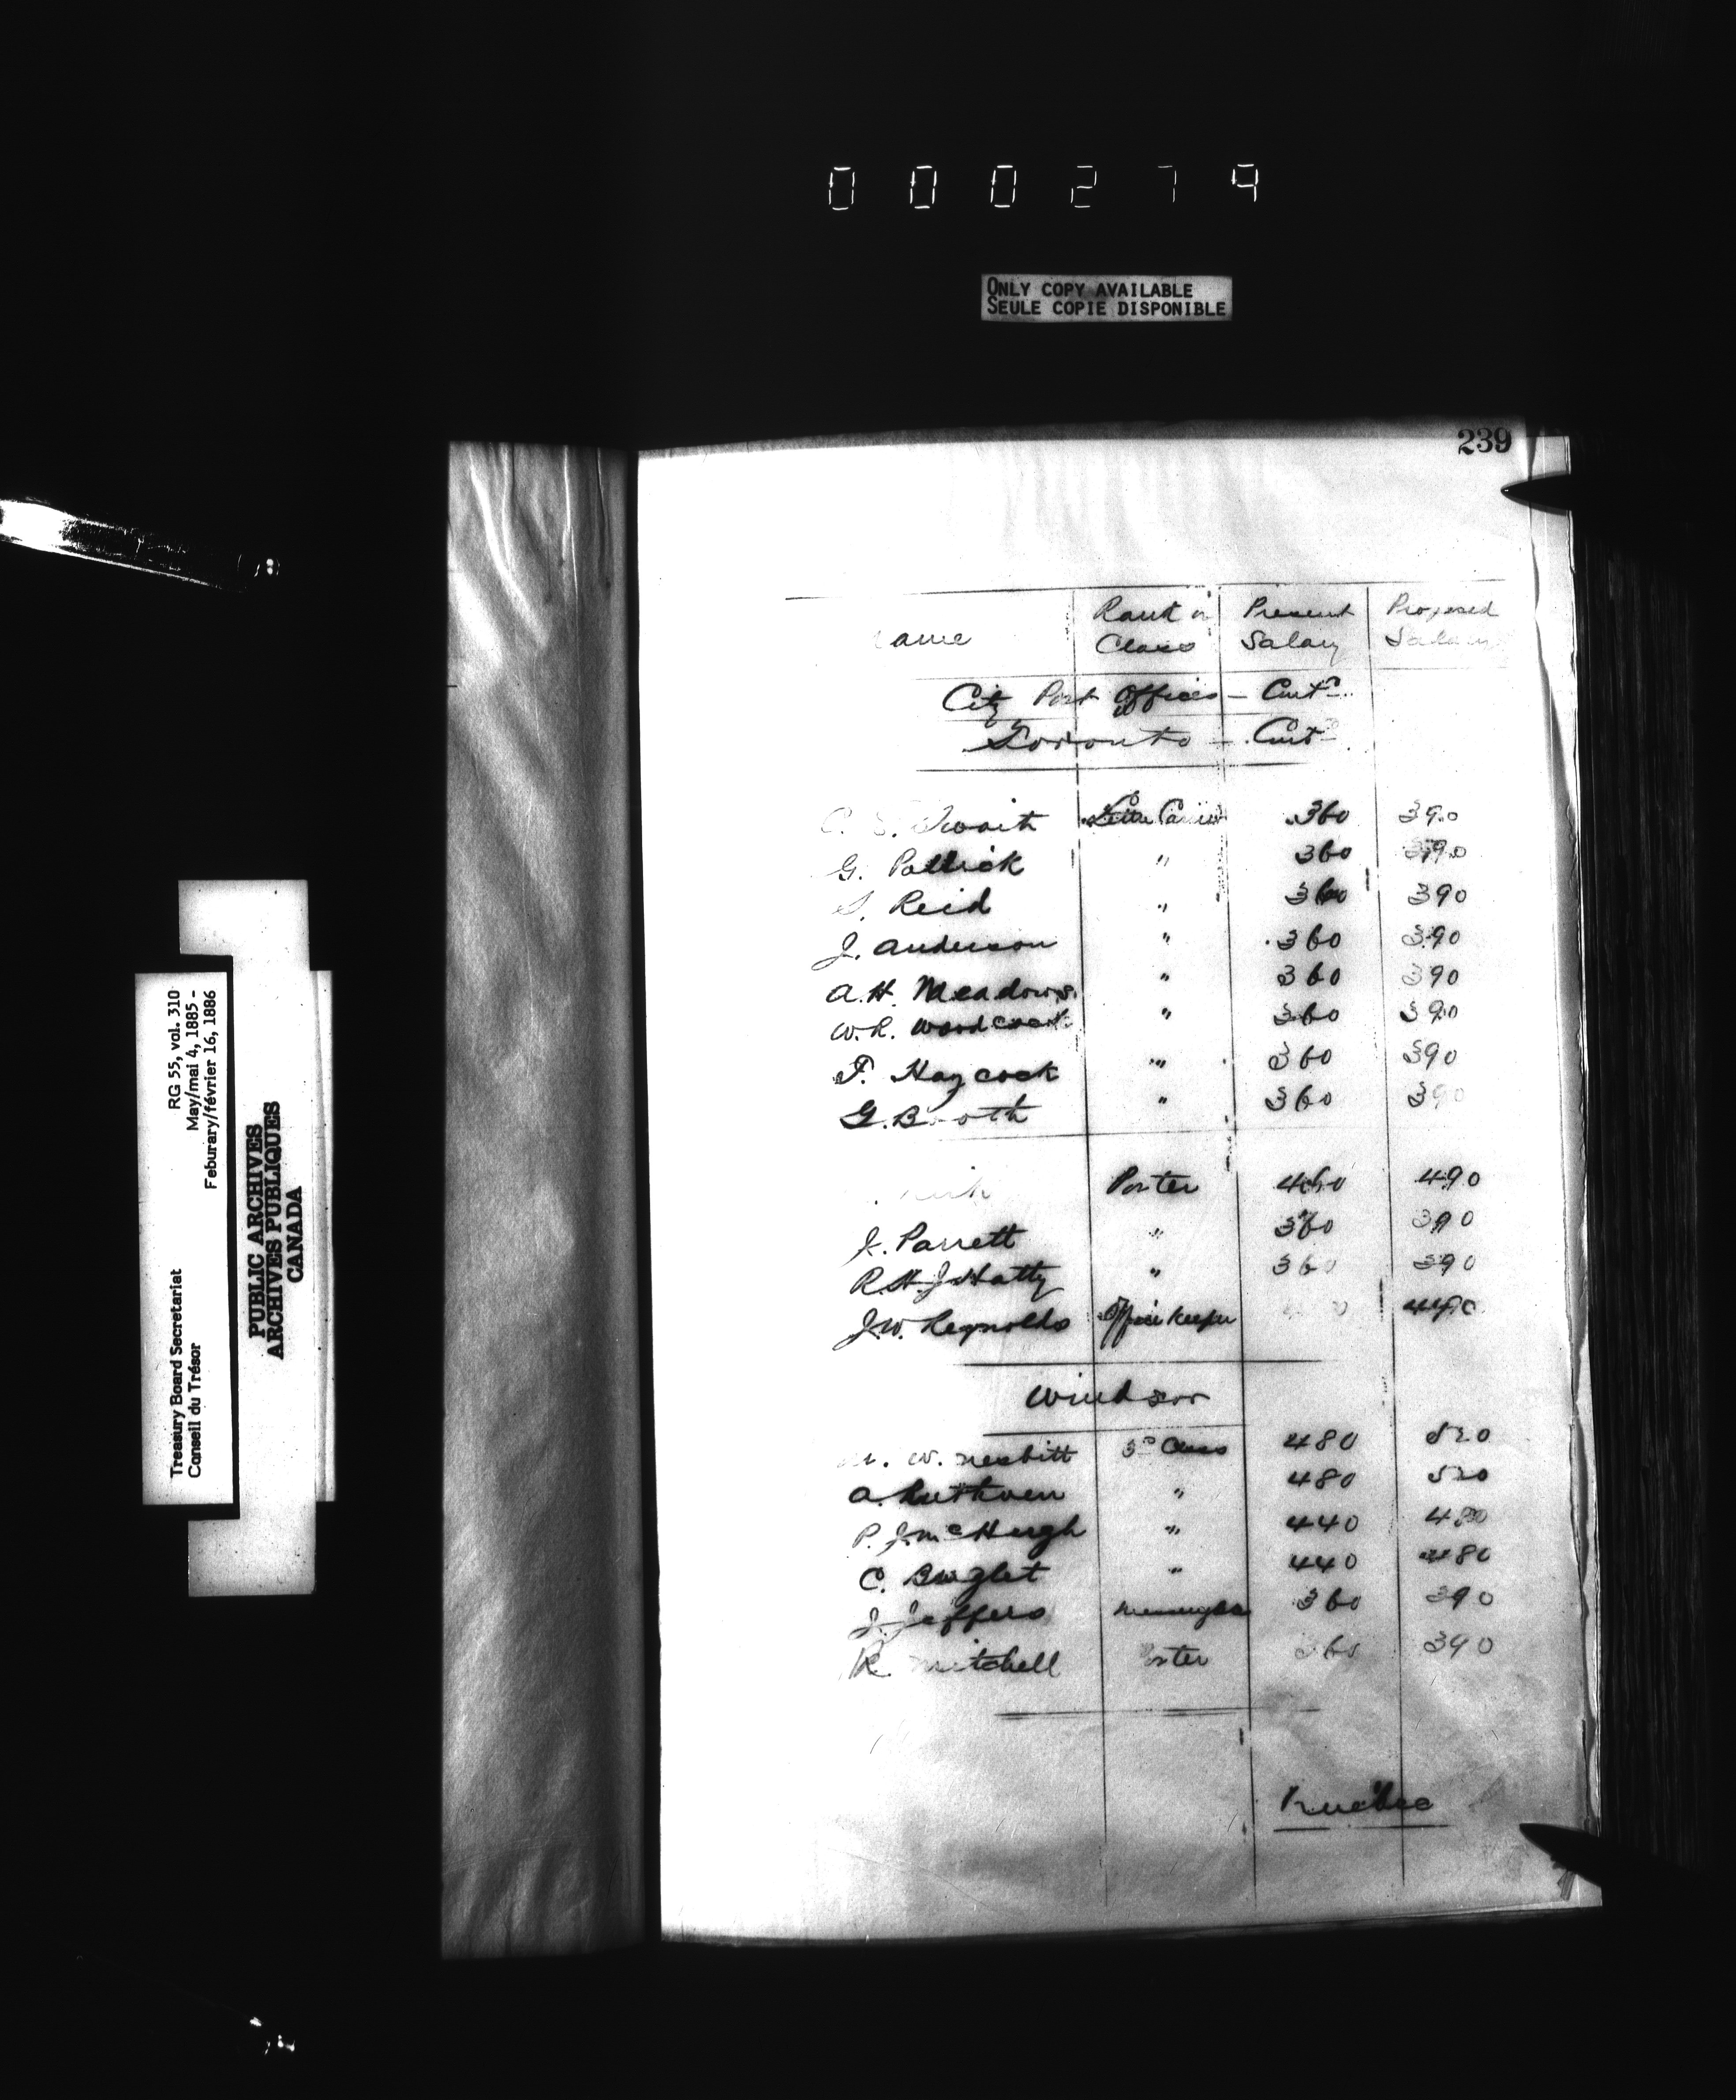 000279
ONLY COPY AVAILABLE
SEULE COPIE DISPONIBLE
239
RG 55, vol. 310
May/mai 4, 1885 -
Feburary/février 16, 1886
Treasury Board Secretariat
Conseil du Trésor
PUBLIC ARCHIVES
ARCHIVES PUBLIQUES
CANADA
Name Rank or Class Present Salary Proposed Salary
City Post Offices - Contd
Toronto - Contd
C. Letter Carrier 360 390
G. " 360 390
S. Reid " 360 390
J. Anderson " 360 390
A.H. Meadows " 360 390
W.R. Woodcock " 360 390
F. Haycock " 360 390
G. Booth " 360 390
Porter 460 490
J. Parrett " 360 390
R.H.J. Hatty " 360 390
J.W. Reynolds Office Keeper 440
Windsor
W. Nesbitt 3rd Class 480 520
A. Ruthven " 480 520
P. J. McHugh " 440 480
C. " 440 480
J. Jeffers Messenger 360 390
R. Mitchell Porter 360 390